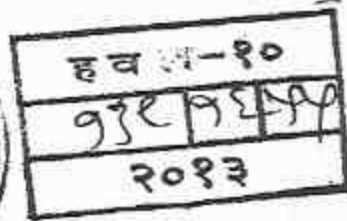 हवल-१०
१३९ १६ ५५
२०१३